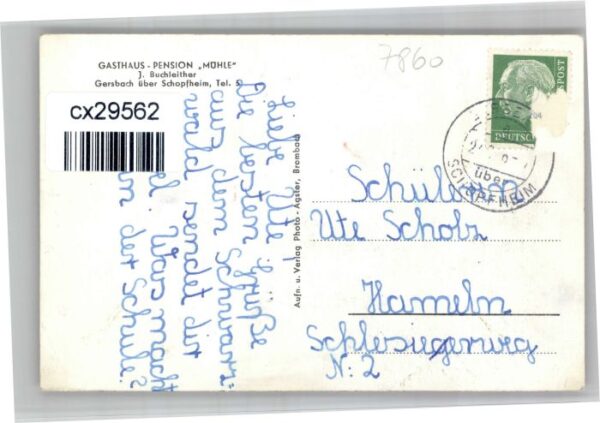 GASTHAUS - PENSION „MÜHLE"
J. Buchleither
Gersbach über Schopfheim, Tel. 5
cx29562
7860
DEUTSCHE
POST
über
SCHOPFHEIM
Liebe Ute!
Die besten Grüße
aus dem Schwarz-
wald sendet dir
Was macht
die Schule?
Aufn. u. Verlag Photo-Agster, Brombach
Schülerin
Ute Scholz
Hameln
Schlesiegerweg
N: 2